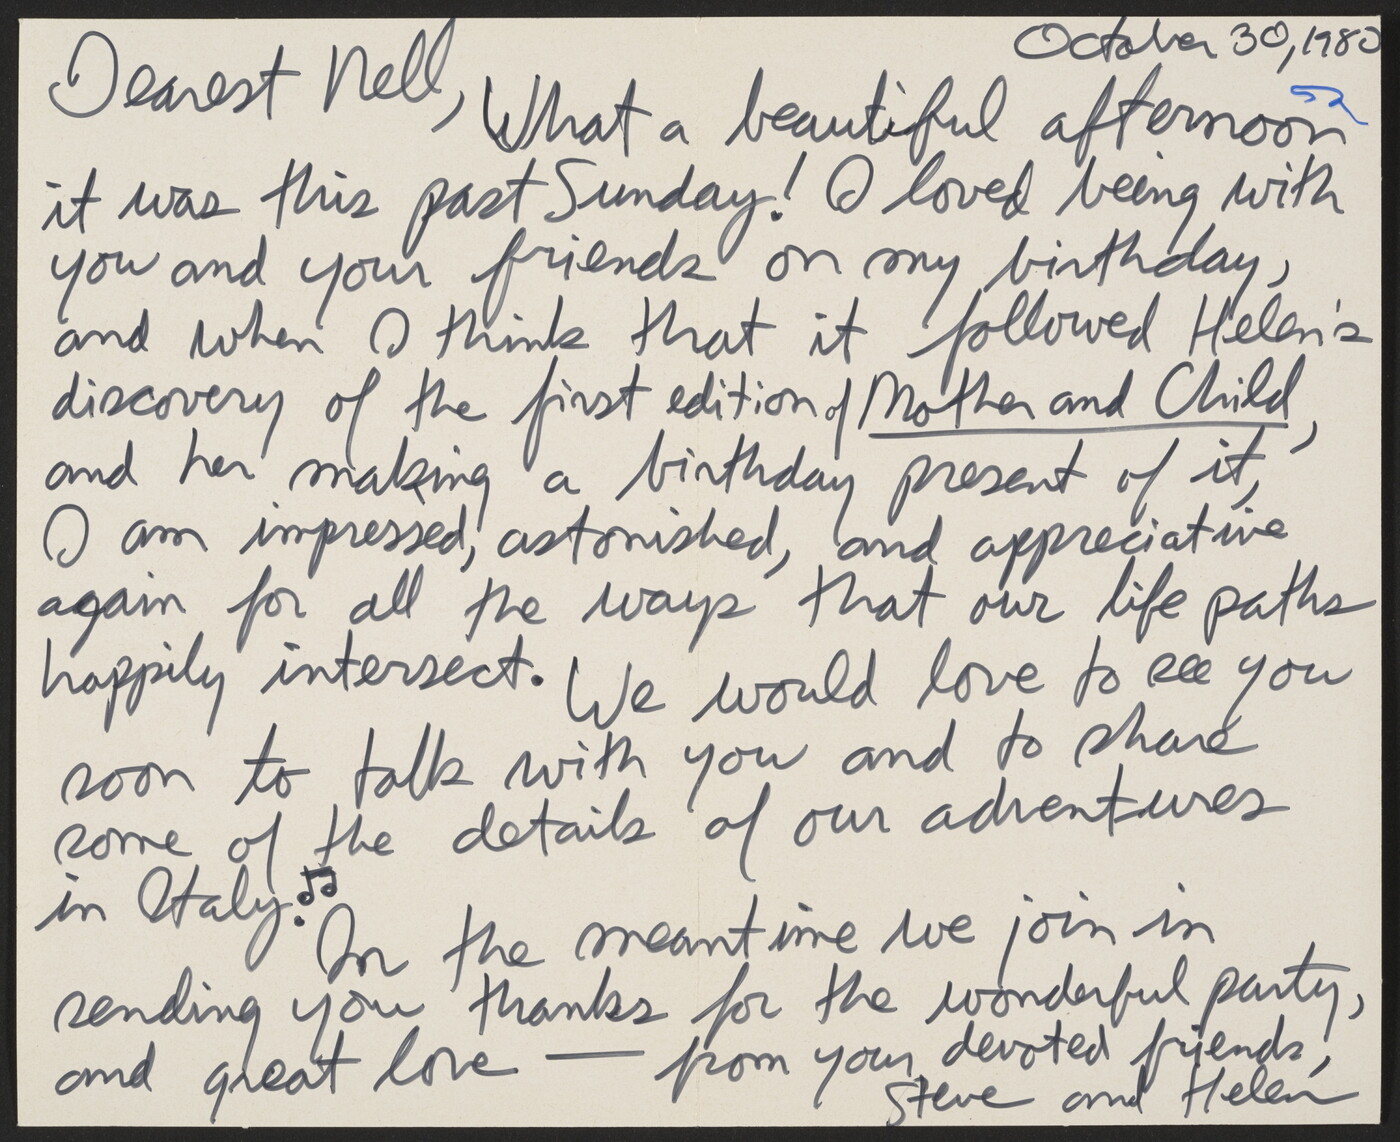 October 30, 1980
Dearest Nell, What a beautiful afternoon
it was this past Sunday! I loved being with
you and your friends on my birthday,
and when I think that it followed Helen's
discovery of the first edition of Mother and Child,
and her making a birthday present of it,
I am impressed, astonished, and appreciative
again for all the ways that our life paths
happily intersect. We would love to see you
soon to talk with you and to share
some of the details of our adventures
in Italy.
In the meantime we join in
sending you thanks for the wonderful party,
and great love — from your devoted friends,
Steve and Helen